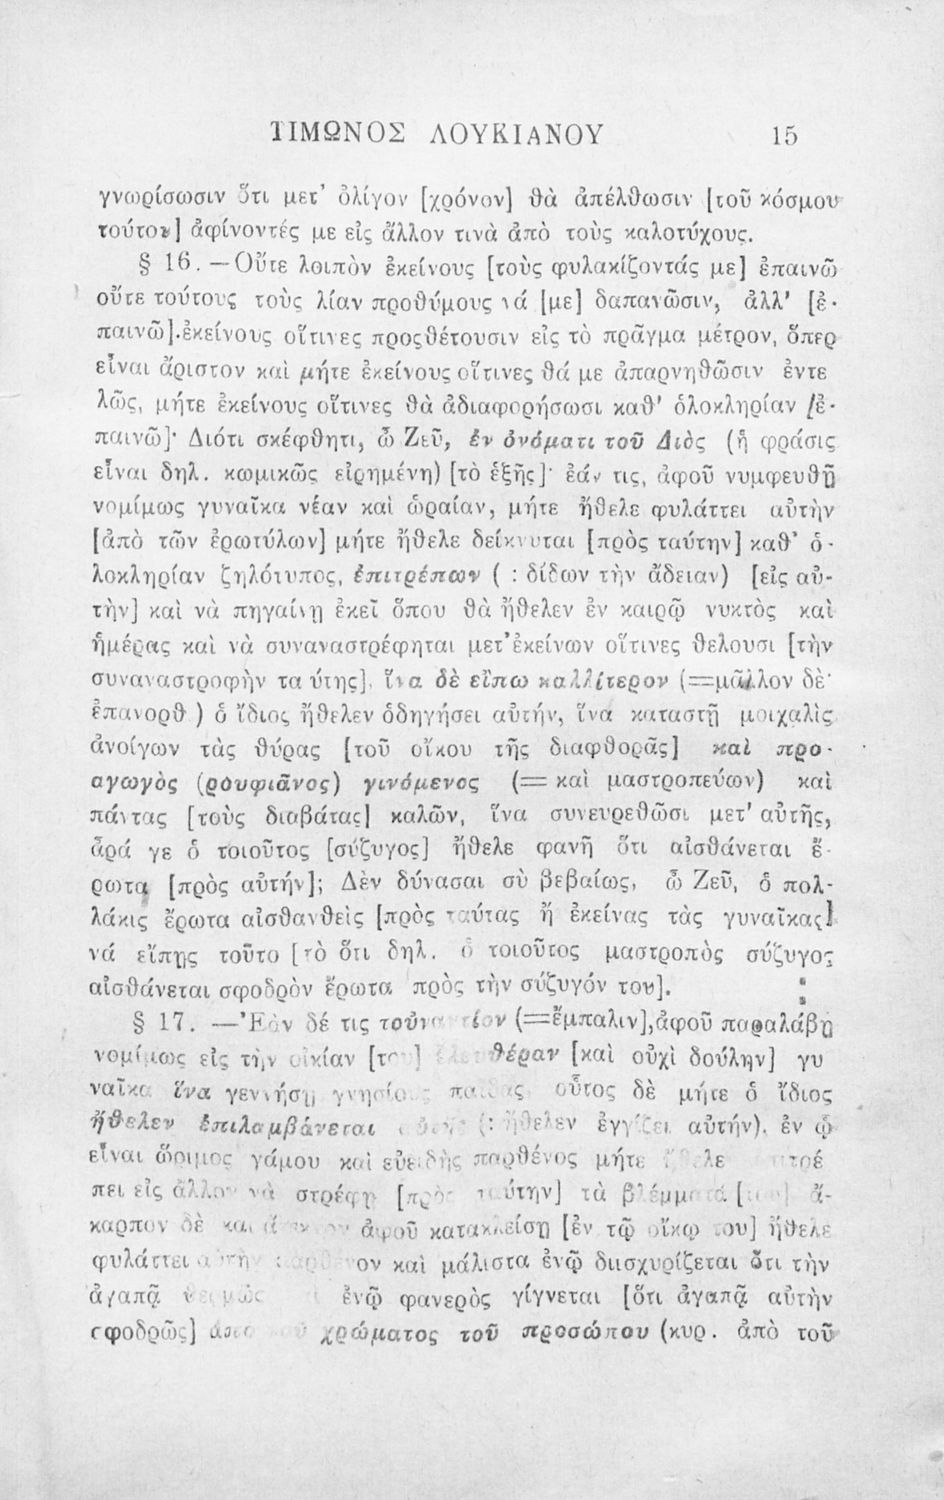 ΤΙΜΩΝΟΣ ΛΟΥΚΙΑΝΟΥ 15
γνωρίσωσιν ὅτι μετ' ὀλίγον [χρόνον] θὰ ἀπέλθωσιν [τοῦ κόσμου
τούτου] ἀφίνοντές με εἰς ἄλλον τινὰ ἀπὸ τοὺς καλοτύχους.
§ 16. — Οὔτε λοιπὸν ἐκείνους [τοὺς φυλακίζοντάς με] ἐπαινῶ
οὔτε τούτους τοὺς λίαν προθύμους νά [με] δαπανῶσιν, ἀλλ' [ἐ-
παινῶ] ἐκείνους οἵτινες προςθέτουσιν εἰς τὸ πρᾶγμα μέτρον, ὅπερ
εἶναι ἄριστον καὶ μήτε ἐκείνους οἵτινες θά με ἀπαρνηθῶσιν ἐντε
λῶς, μήτε ἐκείνους οἵτινες θὰ ἀδιαφορήσωσι καθ' ὁλοκληρίαν [ἐ-
παινῶ]· Διότι σκέφθητι, ὦ Ζεῦ, ἐν ὀνόματι τοῦ Διὸς (ἡ φράσις
εἶναι δηλ. κωμικῶς εἰρημένη) [τὸ ἑξῆς]· ἐάν τις, ἀφοῦ νυμφευθῇ
νομίμως γυναῖκα νέαν καὶ ὡραίαν, μήτε ἤθελε φυλάττει αὐτὴν
[ἀπὸ τῶν ἐρωτύλων] μήτε ἤθελε δείκνυται [πρὸς ταύτην] καθ' ὁ-
λοκληρίαν ζηλότυπος, ἐπιτρέπων ( : δίδων τὴν ἄδειαν) [εἰς αὐ-
τὴν] καὶ νὰ πηγαίνῃ ἐκεῖ ὅπου θὰ ἤθελεν ἐν καιρῷ νυκτὸς καὶ
ἡμέρας καὶ νὰ συναναστρέφηται μετ' ἐκείνων οἵτινες θελουσι [τὴν
συναναστροφὴν ταύτης], ἵνα δὲ εἴπω καλλίτερον (=μᾶλλον δὲ·
ἐπανορθ ) ὁ ἴδιος ἤθελεν ὁδηγήσει αὐτήν, ἵνα καταστῇ μοιχαλὶς
ἀνοίγων τὰς θύρας [τοῦ οἴκου τῆς διαφθορᾶς] καὶ προ-
αγωγὸς (ρουφιᾶνος) γινόμενος (= καὶ μαστροπεύων) καὶ
πάντας [τοὺς διαβάτας] καλῶν, ἵνα συνευρεθῶσι μετ' αὐτῆς,
ἆρά γε ὁ τοιοῦτος [σύζυγος] ἤθελε φανῆ ὅτι αἰσθάνεται ἔ-
ρωτα [πρὸς αὐτήν]; Δὲν δύνασαι σὺ βεβαίως, ὦ Ζεῦ, ὁ πολ-
λάκις ἔρωτα αἰσθανθεὶς [πρὸς ταύτας ἢ ἐκείνας τὰς γυναῖκας]
νά εἴπῃς τοῦτο [τὸ ὅτι δηλ. ὁ τοιοῦτος μαστροπὸς σύζυγος
αἰσθάνεται σφοδρὸν ἔρωτα πρὸς τὴν σύζυγόν του].
§ 17. — Ἐὰν δέ τις τοὐναντίον (=ἔμπαλιν], ἀφοῦ παραλάβῃ
νομίμως εἰς τὴν οἰκίαν [του] ἐλευθέραν [καὶ οὐχὶ δούλην] γυ
ναῖκα ἵνα γεννήσῃ γνησίους παῖδας οὗτος δὲ μήτε ὁ ἴδιος
ἤθελεν ἐπιλαμβάνεται αὐτῆς (: ἤθελεν ἐγγίζει αὐτήν), ἐν ᾧ
εἶναι ὥριμος γάμου καὶ εὐειδὴς παρθένος μήτε
πει εἰς ἄλλον νὰ στρέφῃ [πρὸς ταύτην] τὰ βλέμματά [του] ἄ-
καρπον δὲ καὶ ἄτεκνον ἀφοῦ κατακλείσῃ [ἐν τῷ οἴκῳ του] ἤθελε
φυλάττει αὐτὴν παρθένον καὶ μάλιστα ἐνῷ διισχυρίζεται ὅτι τὴν
ἀγαπᾷ θερμῶς ἐνῷ φανερὸς γίγνεται [ὅτι ἀγαπᾷ αὐτὴν
σφοδρῶς] ἀπὸ τοῦ χρώματος τοῦ προσώπου (κυρ. ἀπὸ τοῦ